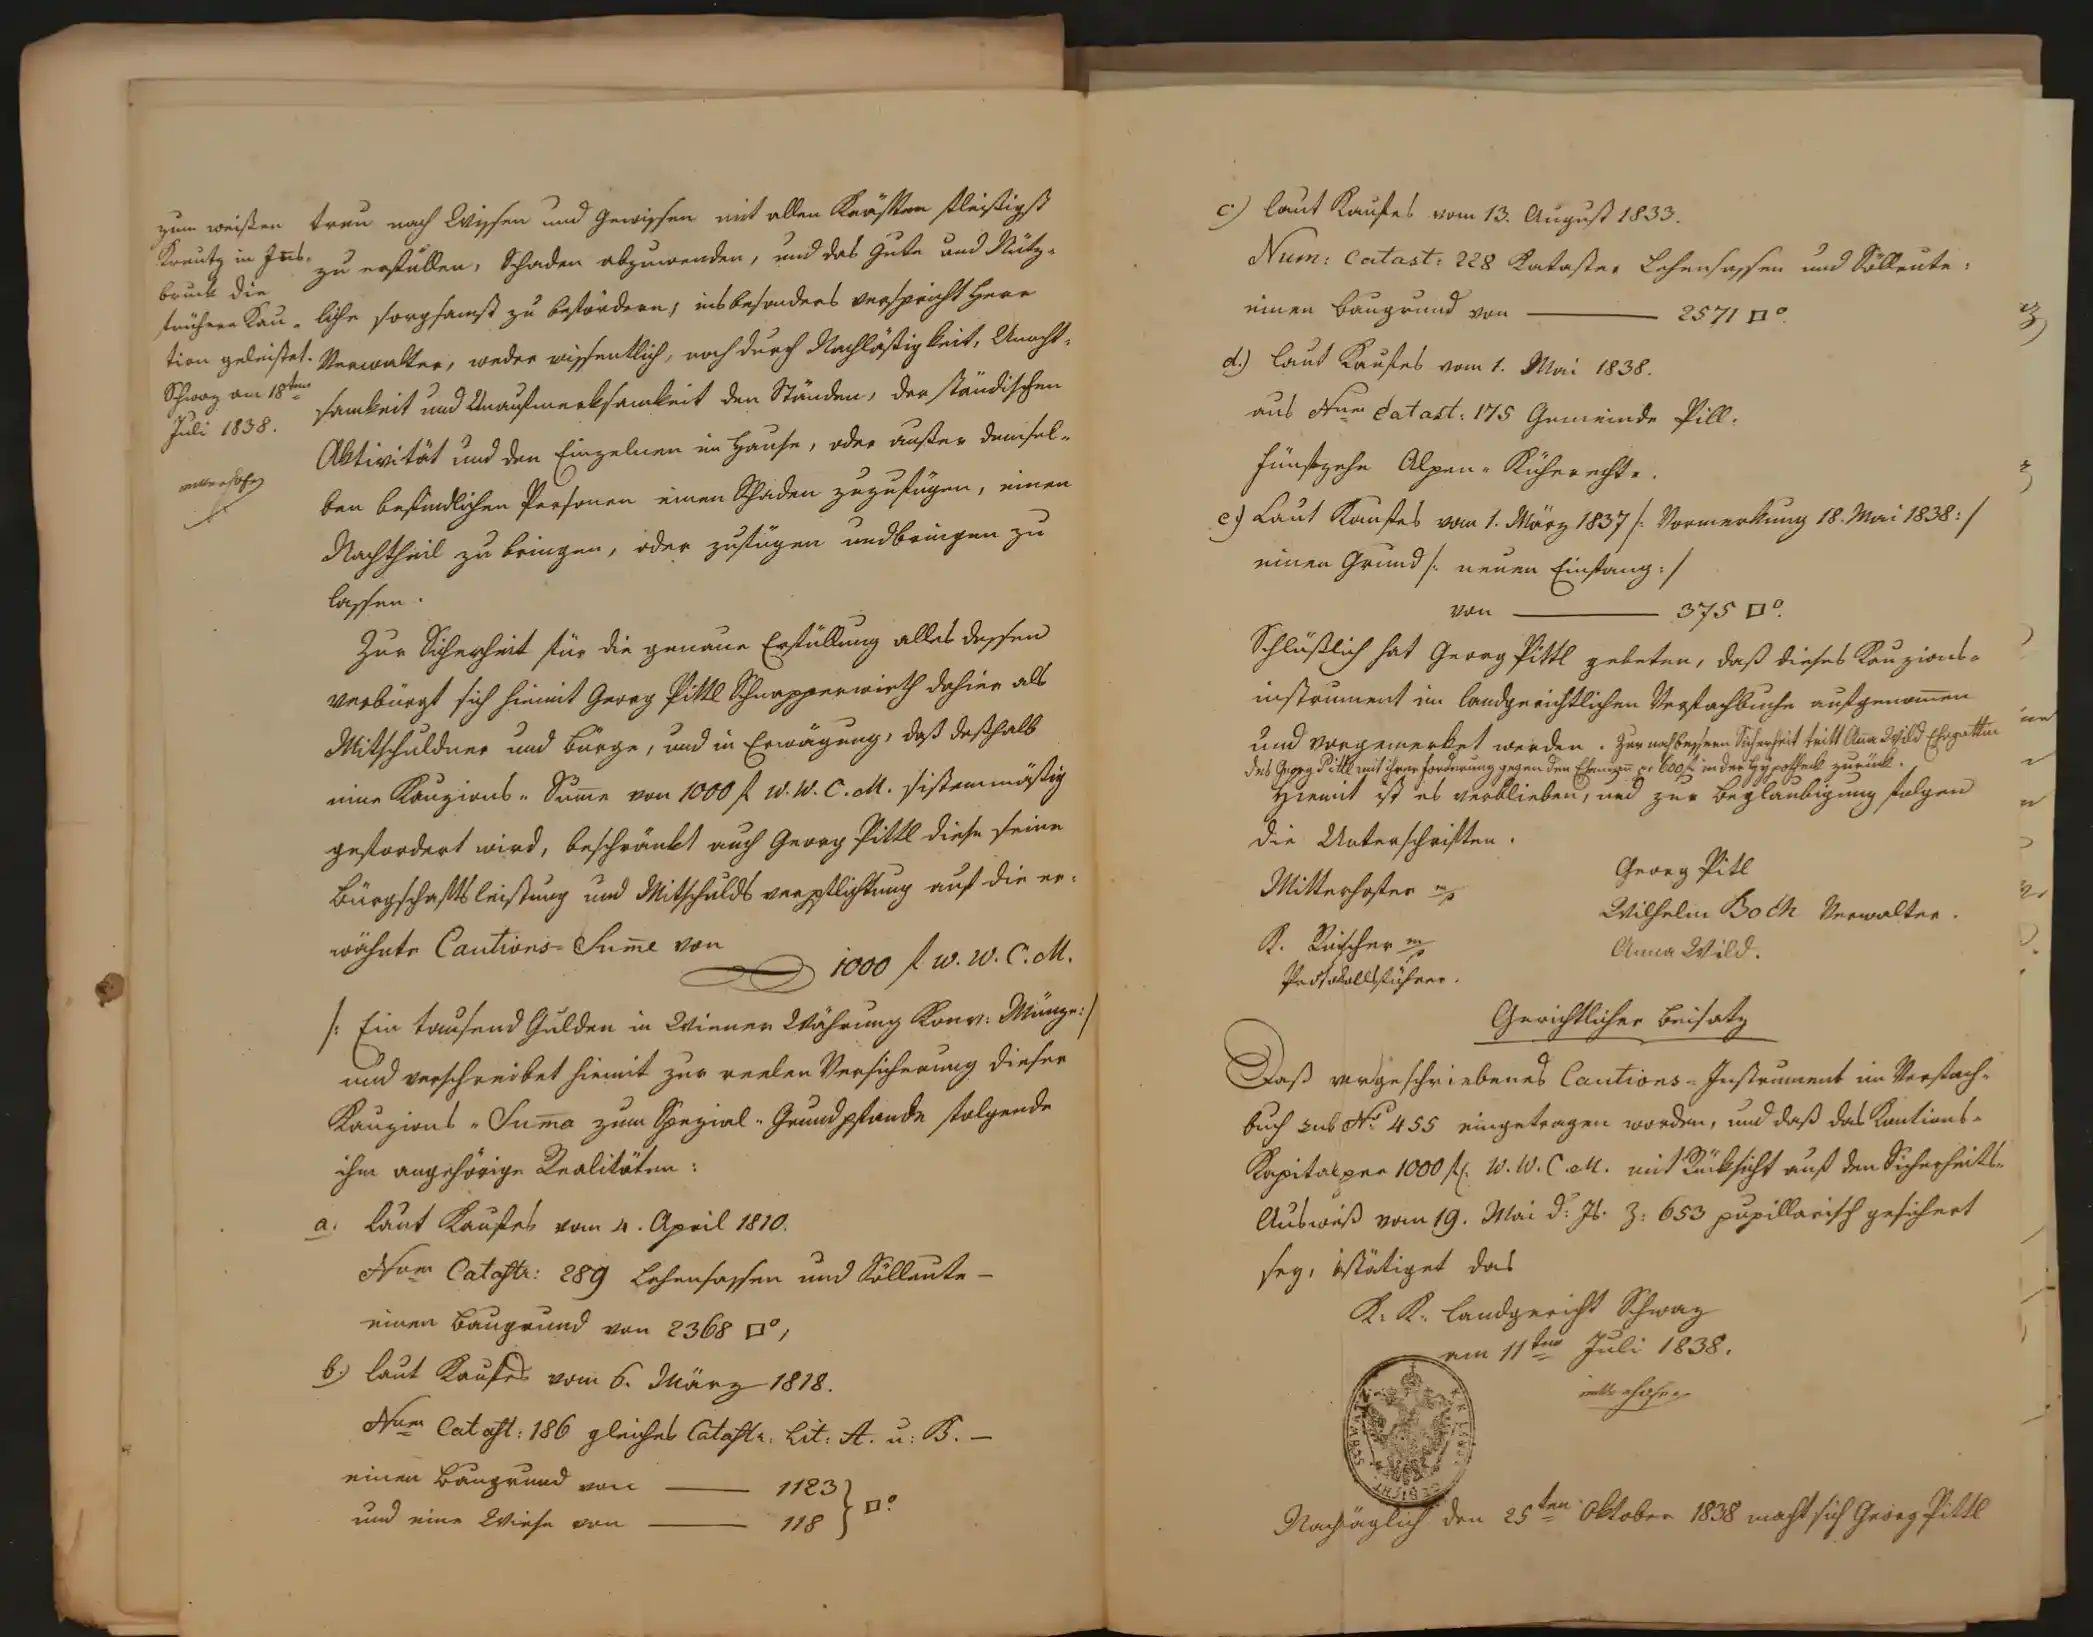 zum weißen
Kreutz in Ins-
bruck die
frühere Kau-
tion geleistet.
Schwaz am 18ten
Juli 1838.
treu nach Wissen und Gewissen mit allen Kräften fleißigst
zu erfüllen, Schaden abzuwenden, und das Gute und Nütz-
liche sorgsamst zu befördern, insbesonders verspricht Herr
Verwalter, weder wissentlich, noch durch Nachläßigkeit, Unacht-
samkeit und Unaufmerksamkeit den Ständen, der ständischen
Aktivität und den Einzelnen im Hause, oder außer demsel-
ben befindlichen Personen einen Schaden zuzufügen, einen
Nachtheil zu bringen, oder zufügen und bringen zu
lassen.
Zur Sicherheit für die genaue Erfüllung alles dessen
verbürgt sich hiemit Georg Pittl Schnapperwirth dahier als
Mitschuldner und Bürge, und in Erwägung, daß deßhalb
eine Kauzions-Sum̅e von 1000 f W. W. C. M. sistemmäßig
gefordert wird, beschränkt auch Georg Pittl diese seine
Bürgschaftsleistung und Mitschuldsverpflichtung auf die er-
wähnte Cautions-Sum̅e von
1000 f W. W. C. M.
/: Ein tausend Gulden in Wiener Währung Konv: Münze:/
und verschreibet hiemit zur reelen Versicherung dieser
Kauzions-Sum̅a zum Spezial-Grundpfande folgende
ihm angehörige Realitäten:
a. laut Kaufes vom 4. April 1810.
Num Catastr: 289 Lehensassen und Sölleute –
einen Baugrund von 2368 □°,
b.) laut Kaufes vom 6. März 1818.
Num Catast: 186 gleiches Catastr. Lit: A. u: B. –
einen Baugrund von — 1123 } □°.
und eine Wiese von — 118
c) laut Kaufes vom 13. August 1833.
Num: Catast: 228 Kataster Lehensassen und Sölleute:
einen Baugrund von — 2571 □°.
d.) laut Kaufes vom 1. Mai 1838.
aus Num Catast: 175 Gemeinde Pill.
fünfzehn Alpen-Kührechte.
e.) Laut Kaufes vom 1. März 1837 /: Vormerkung 18. Mai 1838:/
einen Grund /: neuen Einfang:/
von — 375 □°.
Schlüßlich hat Georg Pittl gebeten, daß dieses Kauzions-
instrument im landgerichtlichen Verfachbuche aufgenom̅en
und vorgemerket werden. Zur noch bessern Sicherheit tritt An̅a Wild Ehegattin
des Georg Pittl mit ihrer Forderung gegen den Eheman̅ pr 600 f in der Hypotheck zurück.
Hiemit ist es verblieben, und zur Beglaubigung folgen
die Unterschriften.
Georg Pitl
Mitterhofer m/p
Wilhelm Boch Verwalter.
K. Rischer m/p
Anna Wild.
Protokollsführer.
Gerichtlicher Beisatz
Daß vorgeschriebenes Cautions-Instrument im Verfach-
buch sub No 455 eingetragen worden, und daß das Kautions-
Kapital per 1000 f. W. W. C. M. mit Rücksicht auf den Sicherheits-
Ausweiß vom 19. Mai d: Js. Z: 653 pupillarisch gesichert
sey, bestätiget das
K: K: Landgericht Schwaz
am 11ten Juli 1838.
Nachträglich den 25ten Oktober 1838 macht sich Georg Pittl